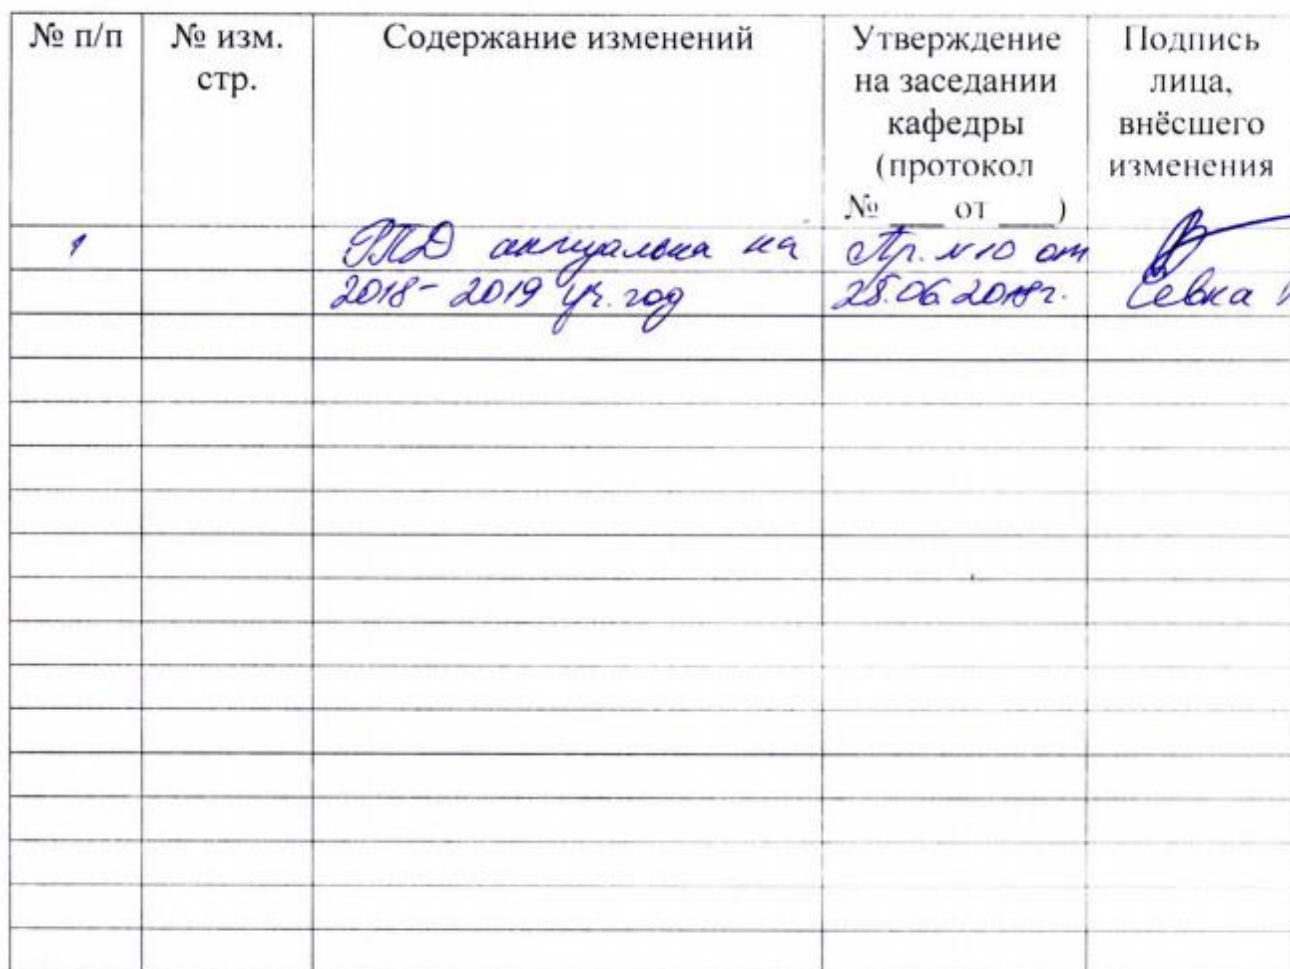 № п/п
№ изм.
стр.
Содержание изменений
Утверждение
на заседании
кафедры
(протокол
№ ___ от ___)
Подпись
лица,
внёсшего
изменения
1
РПД актуальна на
2018-2019 уч. год
Пр. №10 от
25.06.2018г.